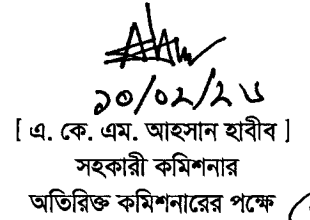 ১০/০২/২৬
[ এ. কে. এম. আহসান হাবীব ]
সহকারী কমিশনার
অতিরিক্ত কমিশনারের পক্ষে